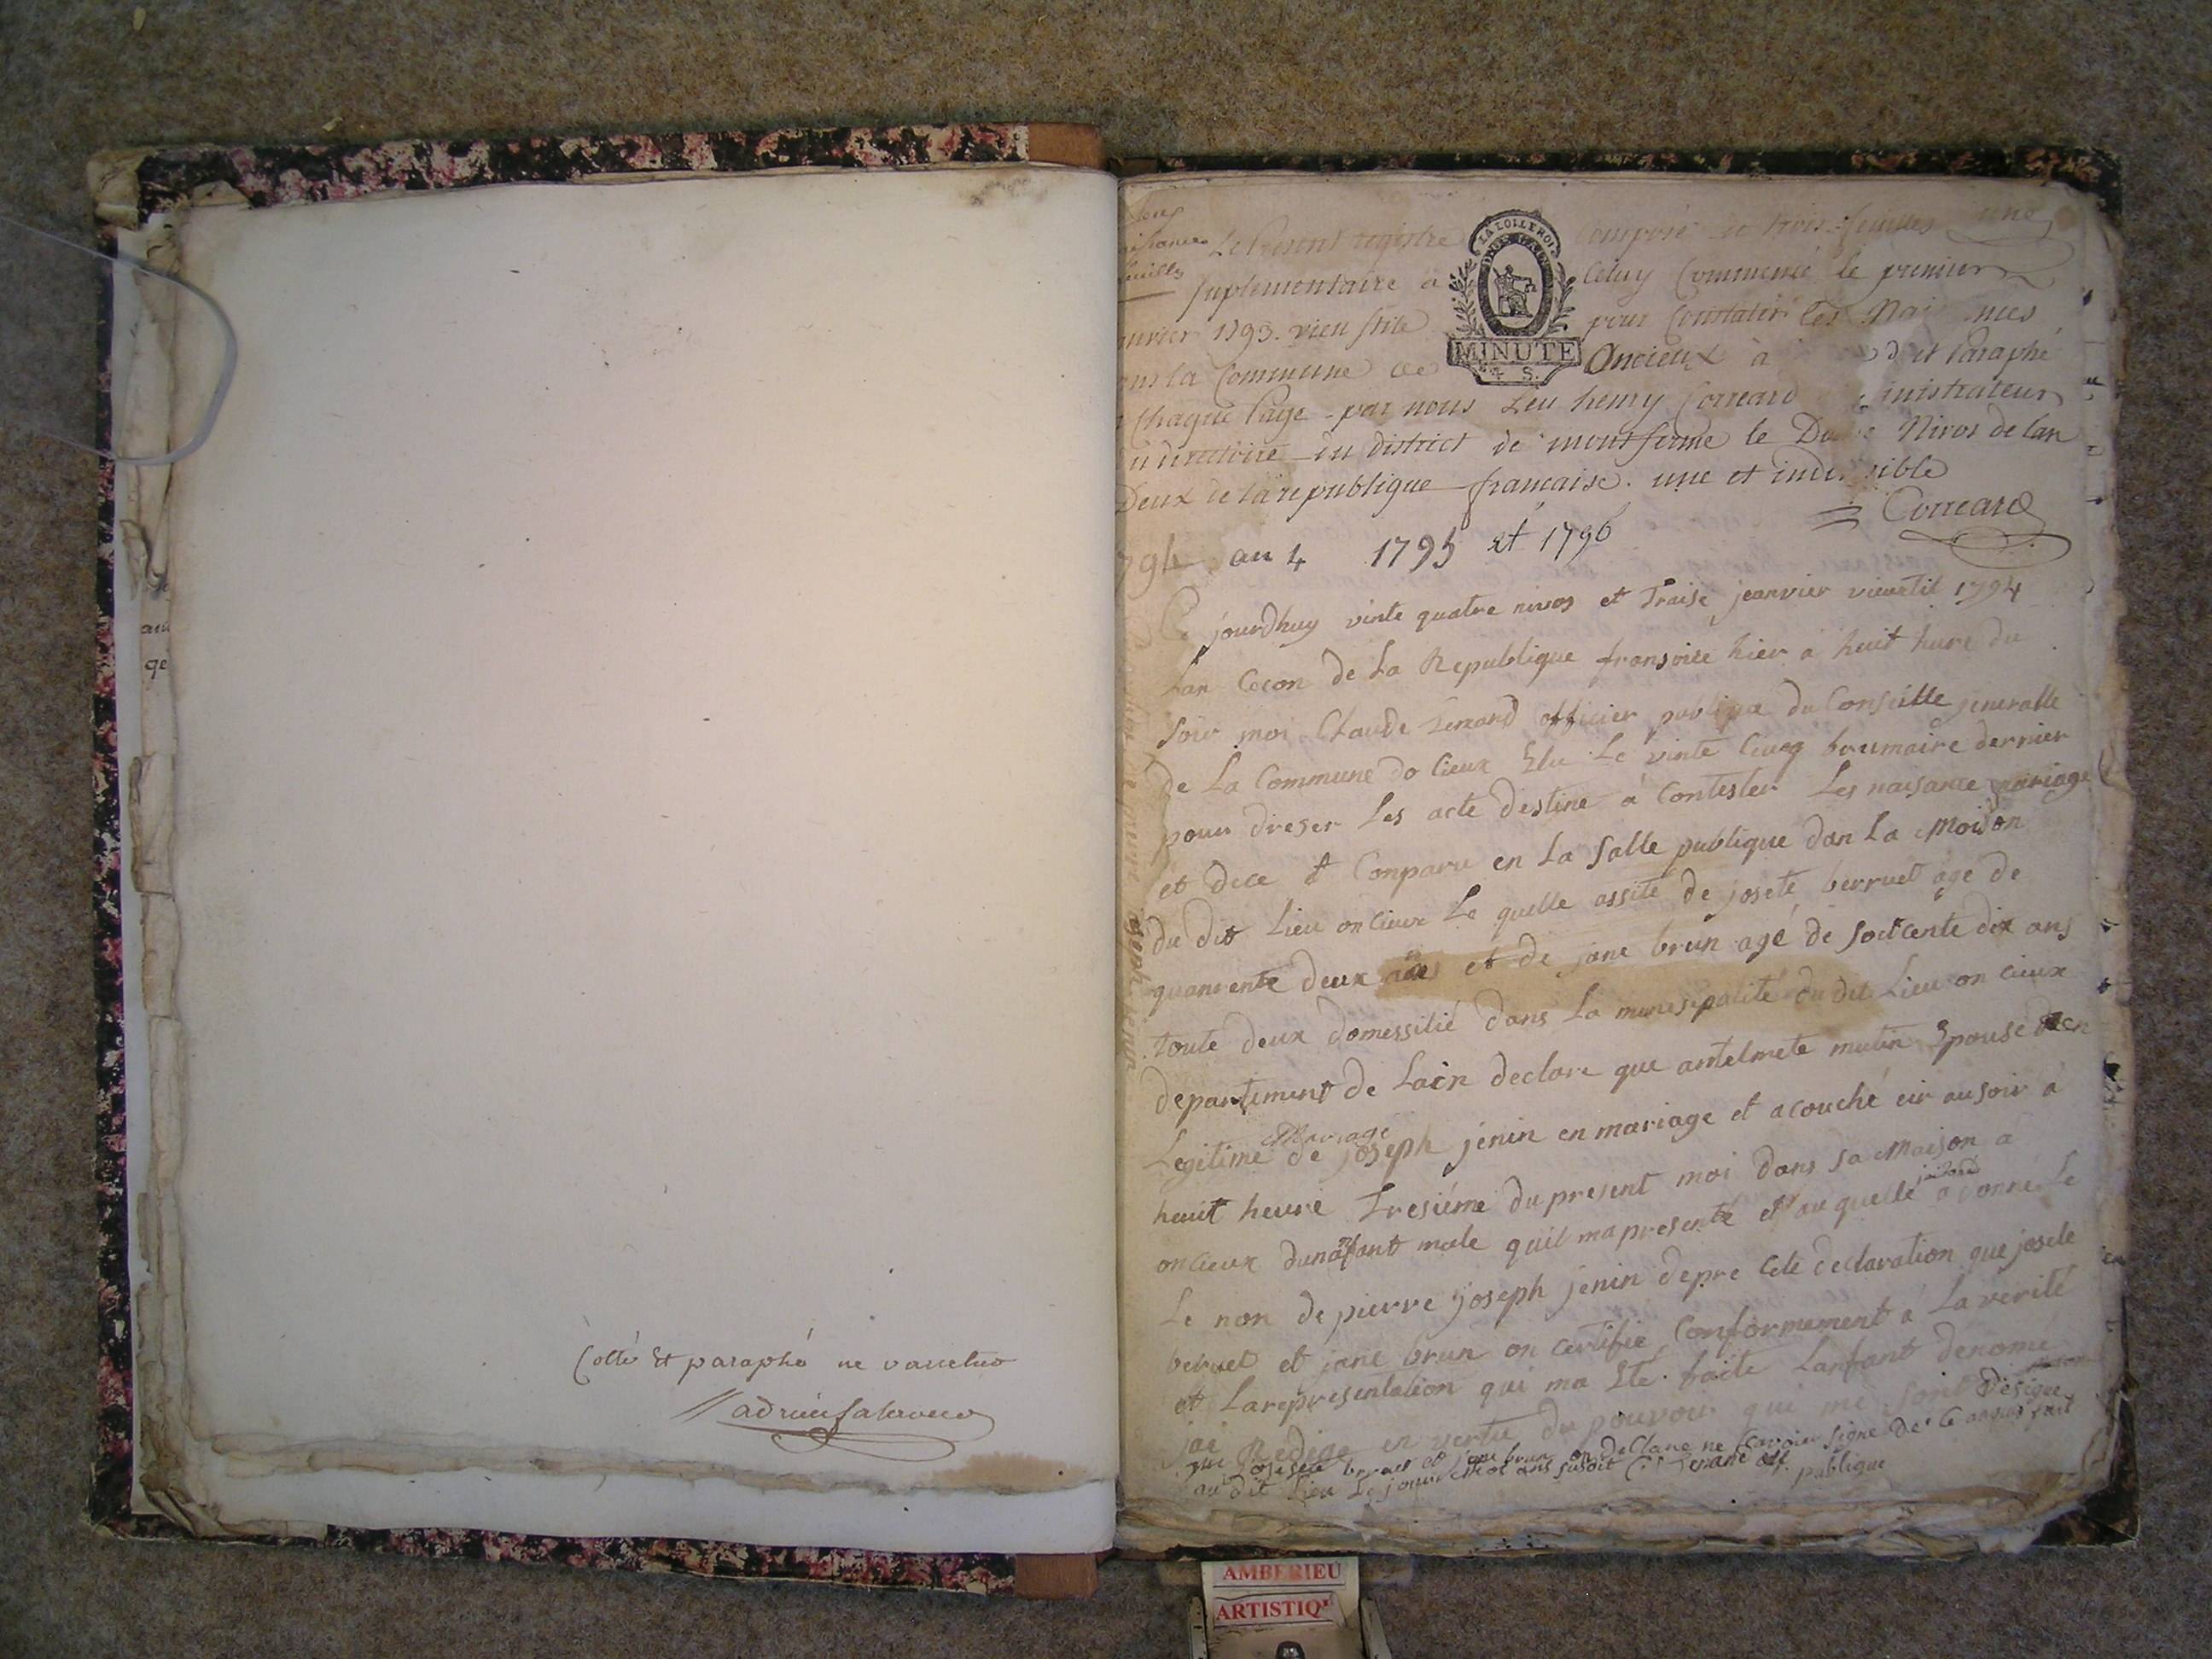 Cotté Et paraphé ne varietur
Le Present registre composé de trois feuilles une
suplementaire a Celuy Commencé le premier
1793. vieu stile pour Constater les
la Commune de Oncieux à et Paraphé
Chaque Page par nous Leu henry Correard
du district de montferme le Nivos de lan
Deux de la republique francaise. une et
Correard
LA LOI LE ROI
MINUTE
4 S.
an 4 1795 et 1796
Ce jourdhuy vinte quatre nivos et Traise jeanvier vieuetil 1794
Lan Cecon de La Republique fransoise hier a huit hure du
soir moi Claude officier publique du Conseille jeneralle
de La Commune do Cieux Elu Le vinte Cinq brumaire dernier
pour dreser Les acte destine a Contester Les naisance mariage
et dece Conparu en La Salle publique dan La Moison
du dit Lieu oncieux Le quelle assité de josete berruet age de
quarente deux ans et de jane brun agé de soitcente dix ans
toute deux domessilié dans La munesipalité du dit Lieu oncieux
departement de Lain declare que antelmete mutin Epouse
Mariage
Legitime de joseph jenin en mariage et acouché eir ausoir a
heuit heure Tresiéme du present moi dans sa Maison a
oncieux dunanfant male quil ma presenté et auquelle a donné Le
Le non de pierre joseph jenin depre Cete declaration que josete
beruet et jane brun on Certifie Conformement a La verité
et Larepresentation qui ma Ete faite Lanfant denomé
jai Redige en vertu du pouvoir qui me sont
que josete beruet et jane brun on declare ne savoir signe de Ce
au dit Lieu Le jour publique
AMBERIEU
ARTISTIQ